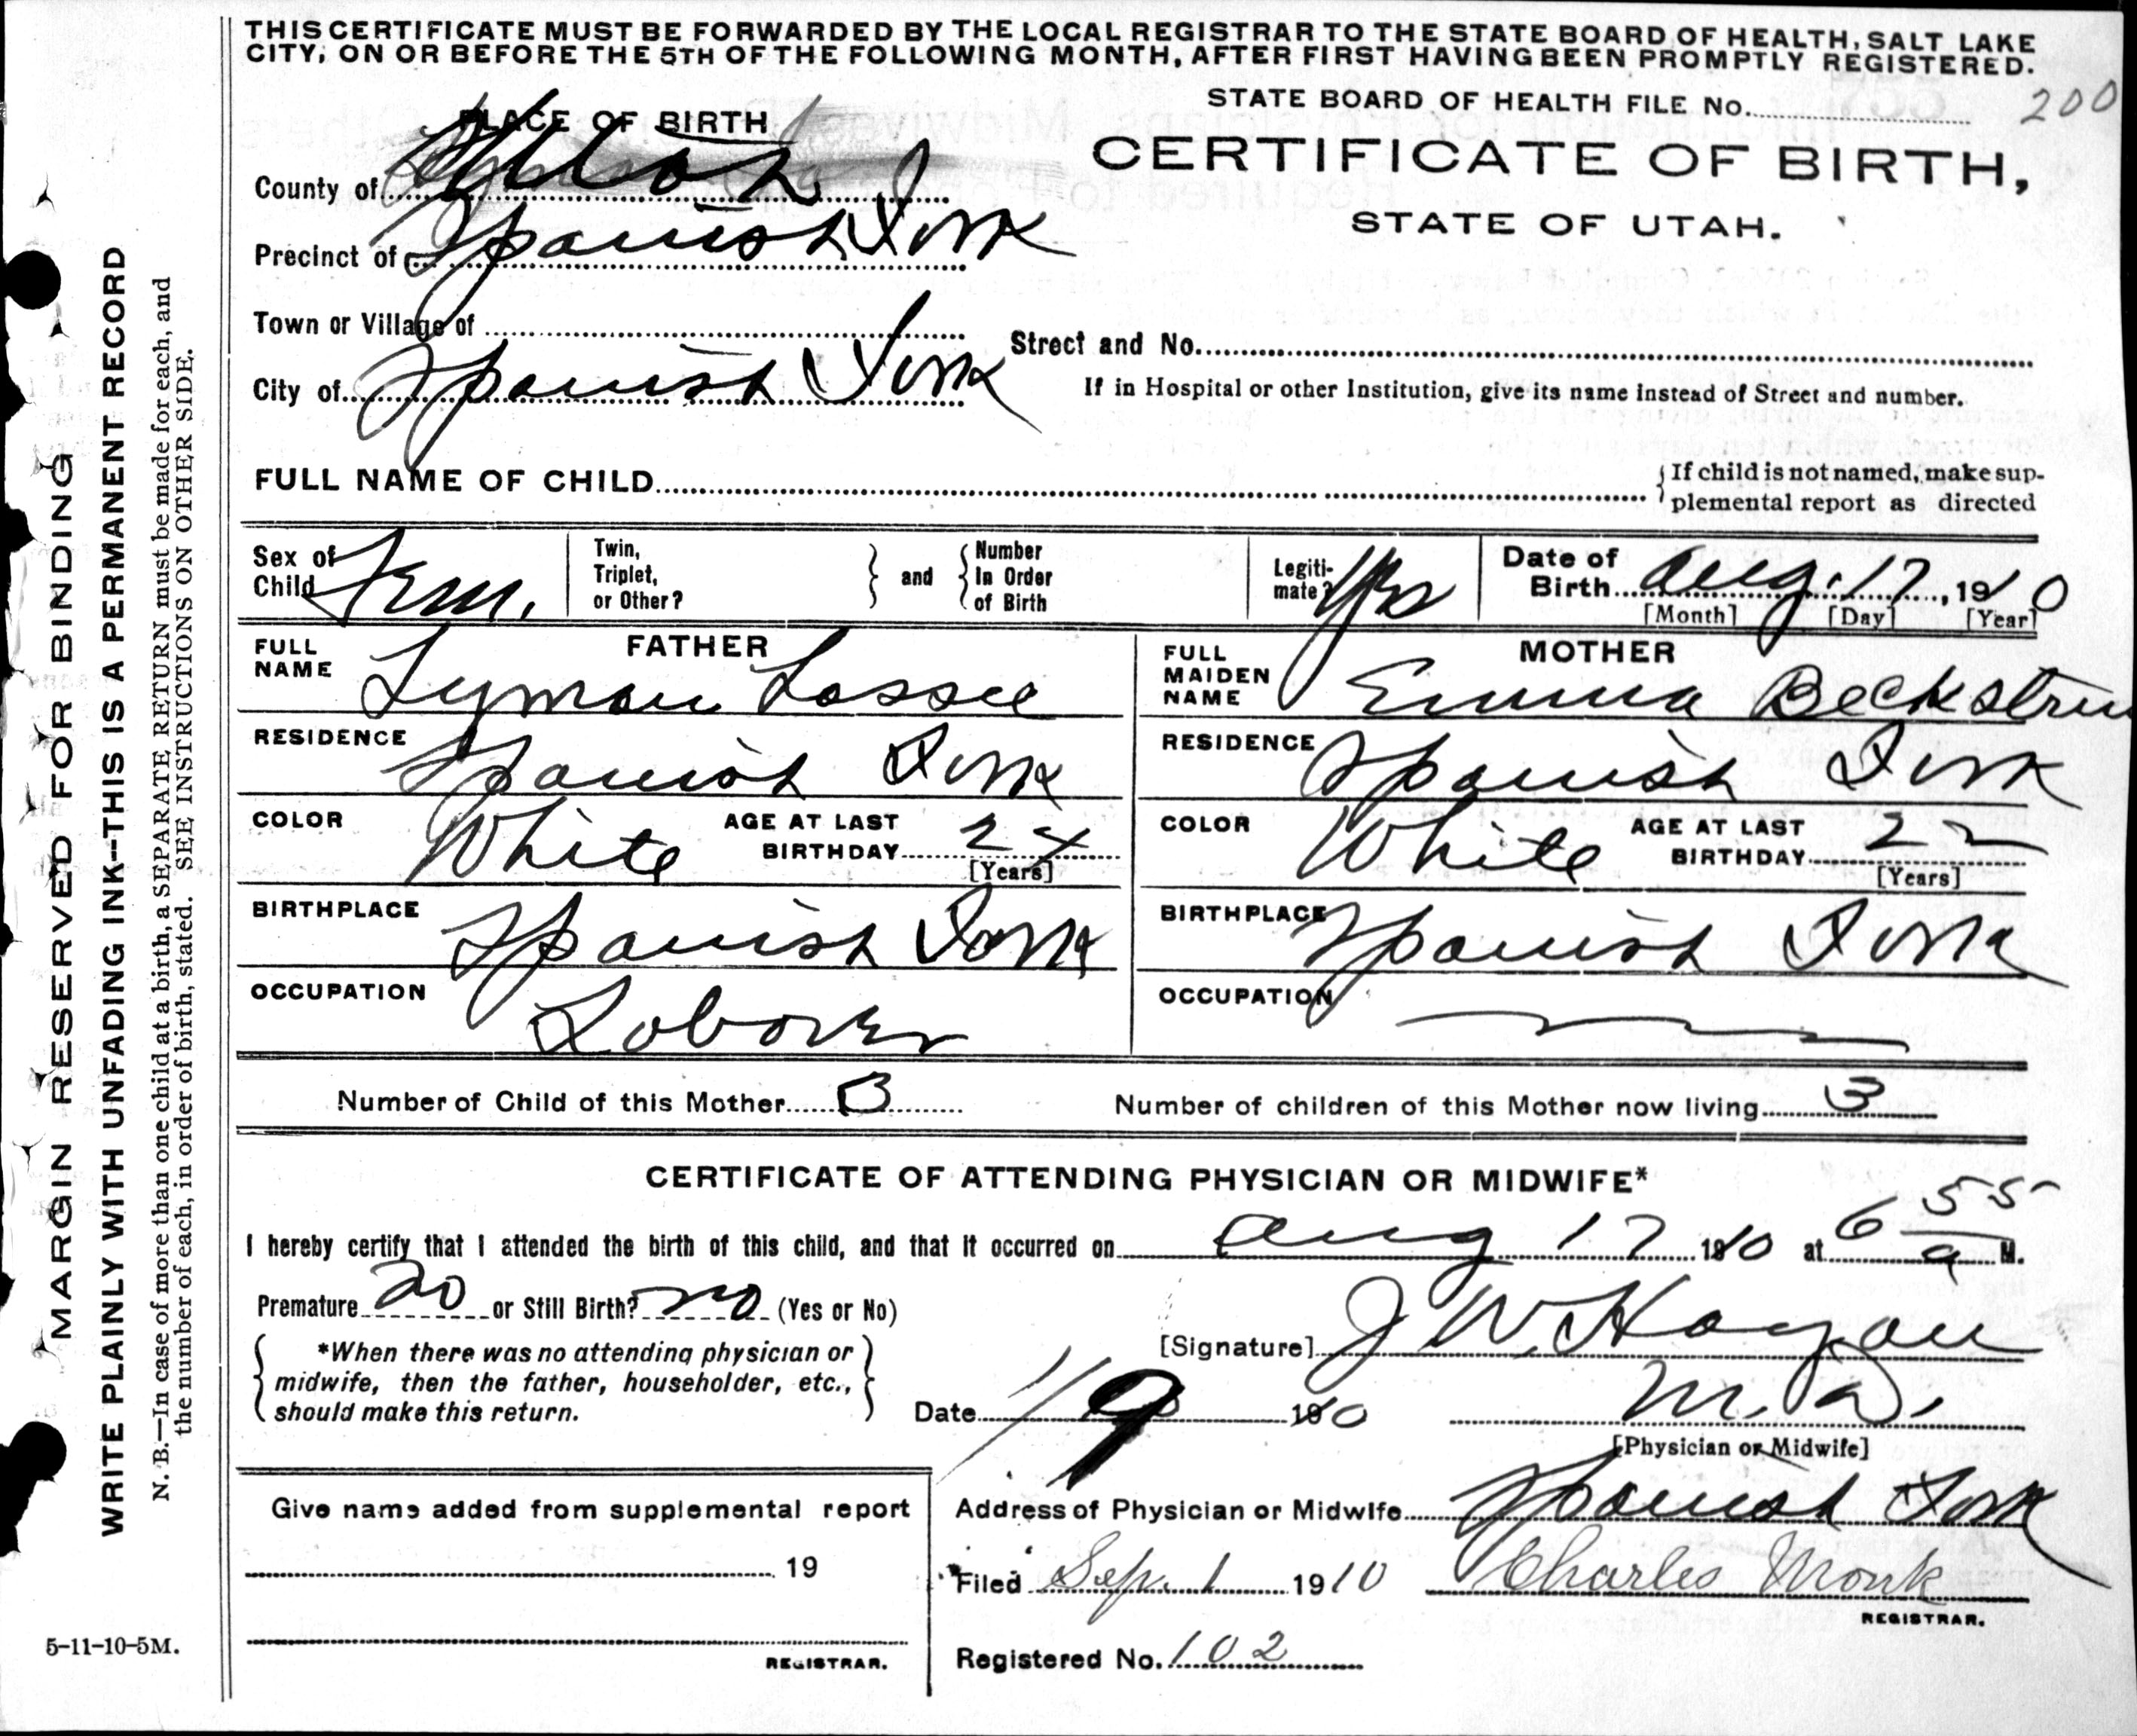 THIS CERTIFICATE MUST BE FORWARDED BY THE LOCAL REGISTRAR TO THE STATE BOARD OF HEALTH, SALT LAKE
CITY, ON OR BEFORE THE 5TH OF THE FOLLOWING MONTH, AFTER FIRST HAVING BEEN PROMPTLY REGISTERED.
STATE BOARD OF HEALTH FILE No. 200
PLACE OF BIRTH
CERTIFICATE OF BIRTH,
STATE OF UTAH.
County of Utah
Precinct of Spanish Fork
Town or Village of
Street and No.
City of Spanish Fork
If in Hospital or other Institution, give its name instead of Street and number.
FULL NAME OF CHILD
If child is not named, make sup-
plemental report as directed
Sex of Child Fem.
Twin, Triplet, or Other?
and
Number In Order of Birth
Legiti-mate? Yes
Date of Birth Aug. 17, 1910
[Month] [Day] [Year]
FATHER
FULL NAME Lyman Lossee
RESIDENCE Spanish Fork
COLOR White AGE AT LAST BIRTHDAY 24
[Years]
BIRTHPLACE Spanish Fork
OCCUPATION Laborer
MOTHER
FULL MAIDEN NAME Emma
RESIDENCE Spanish Fork
COLOR White AGE AT LAST BIRTHDAY 22
[Years]
BIRTHPLACE Spanish Fork
OCCUPATION
Number of Child of this Mother 3
Number of children of this Mother now living 3
CERTIFICATE OF ATTENDING PHYSICIAN OR MIDWIFE*
I hereby certify that I attended the birth of this child, and that it occurred on Aug 17 1910 at 6 55 a M.
Premature no or Still Birth? no (Yes or No)
*When there was no attending physician or
midwife, then the father, householder, etc.,
should make this return.
[Signature] J W Hagan
M.D.
[Physician or Midwife]
Date 1910
Give name added from supplemental report
19
REGISTRAR.
Address of Physician or Midwife Spanish Fork
Filed Sep. 1 1910 Charles Monk
REGISTRAR.
Registered No. 102
MARGIN RESERVED FOR BINDING
WRITE PLAINLY WITH UNFADING INK--THIS IS A PERMANENT RECORD
N. B.—In case of more than one child at a birth, a SEPARATE RETURN must be made for each, and
the number of each, in order of birth, stated. SEE INSTRUCTIONS ON OTHER SIDE.
5-11-10-5M.